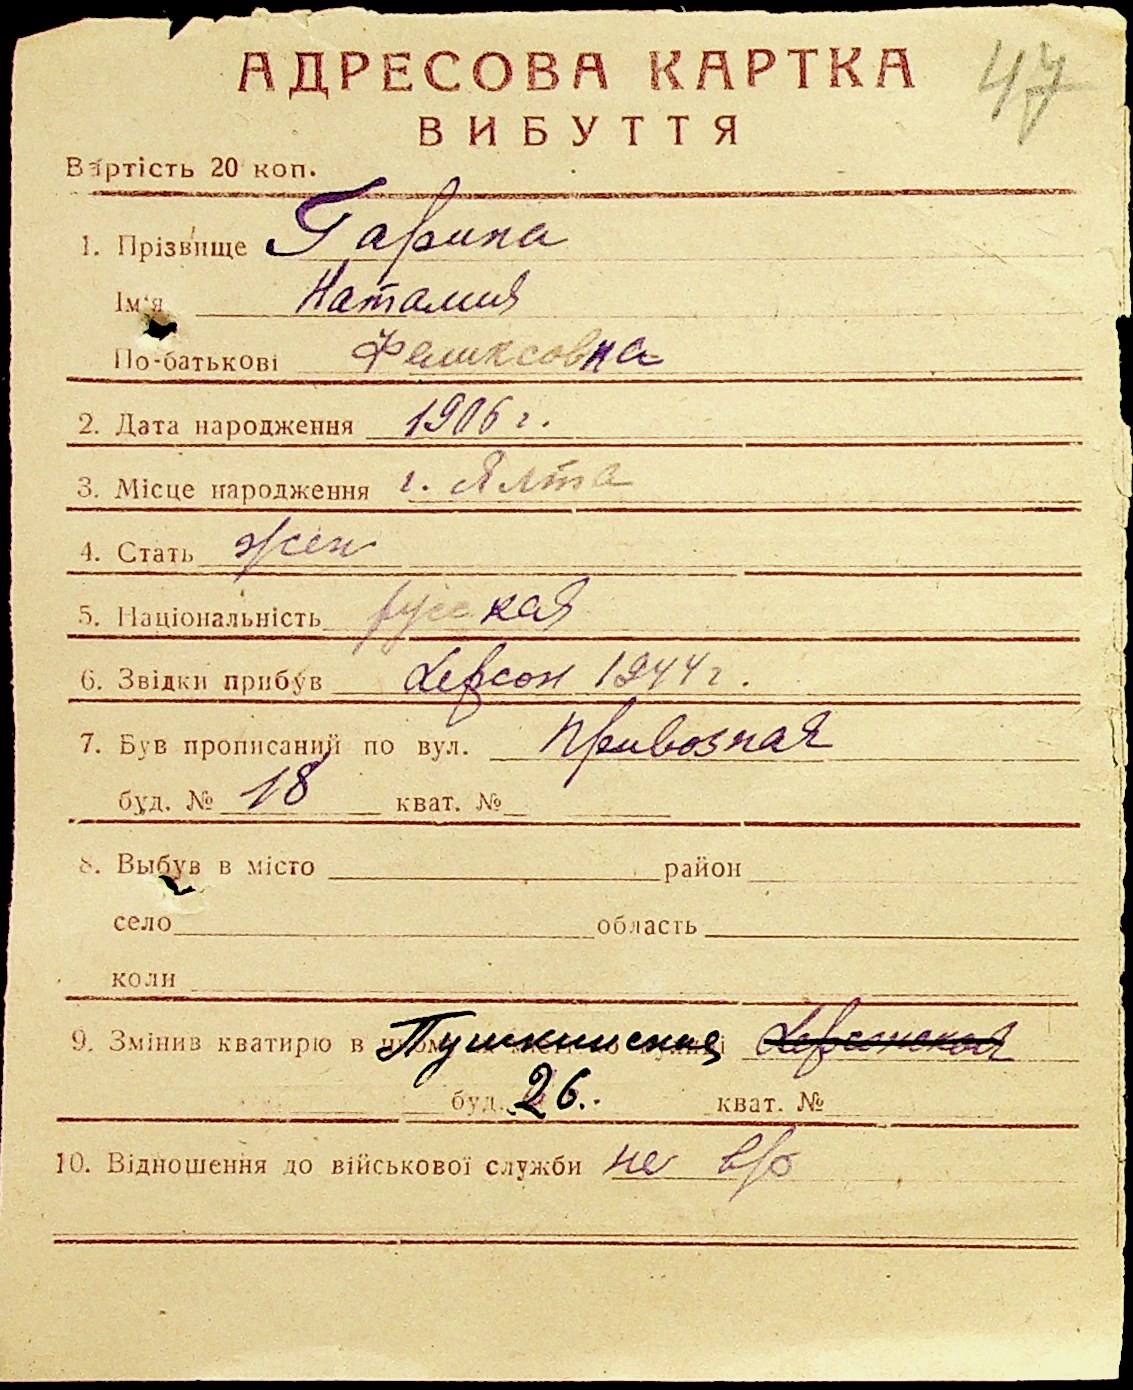 47
АДРЕСОВА КАРТКА
ВИБУТТЯ
Вартість 20 коп.
1. Прізвище Гарина
Ім'я Наталия
По-батькові Феликсовна
2. Дата народження 1906 г.
3. Місце народження г. Ялта
4. Стать жен
5. Національність русская
6. Звідки прибув Херсон 1944 г.
7. Був прописаний по вул. Привозная
буд. № 18 кват. №
8. Выбув в місто район
село область
коли
9. Змінив кватирю в Пушкинская Херсонская
буд. 26. кват. №
10. Відношення до військової служби не в/о